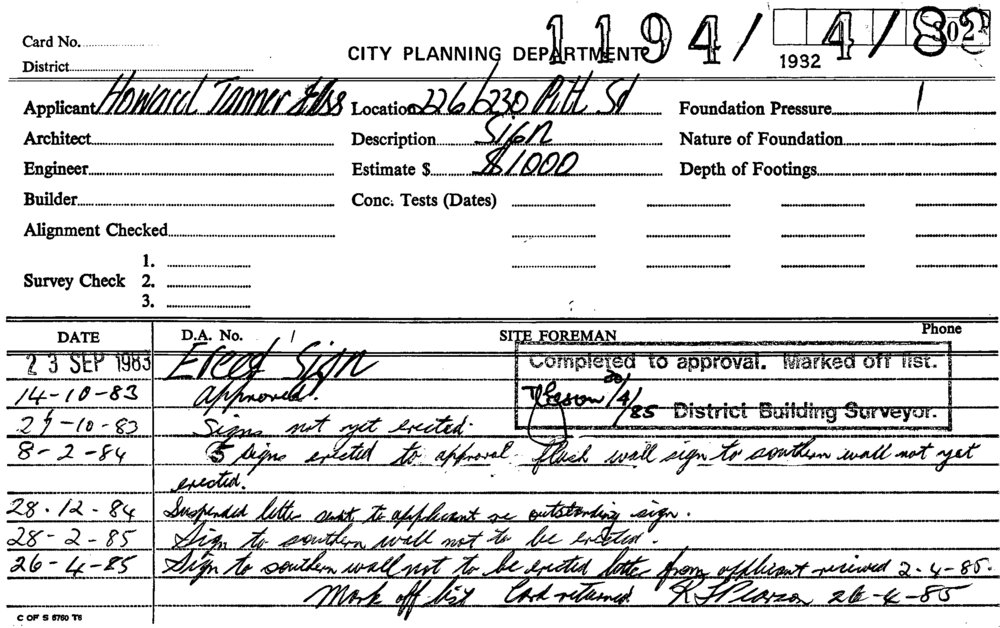 Card No.
District
CITY PLANNING DEPARTMENT
1194/4/83
1932
02
Applicant Howard Tanner & Ass Location 226/230 Pitt St Foundation Pressure
Architect Description Sign Nature of Foundation
Engineer Estimate $ $1000 Depth of Footings
Builder Conc. Tests (Dates)
Alignment Checked
1.
Survey Check 2.
3.
DATE D.A. No. SITE FOREMAN Phone
23 SEP 1983 Erect Sign
Completed to approval. Marked off list.
14-10-83 Approved.
30/4/85 District Building Surveyor.
27-10-83 Signs not yet erected.
8-2-84 5 signs erected to approval. flush wall sign to southern wall not yet
erected.
28.12-84 Suspended letter sent to applicant re outstanding sign.
28-2-85 Sign to southern wall not to be erected.
26-4-85 Sign to southern wall not to be erected letter from applicant received 2-4-85.
Mark off list Card returned. R J Pearson 26-4-85
C OF S 5760 T6